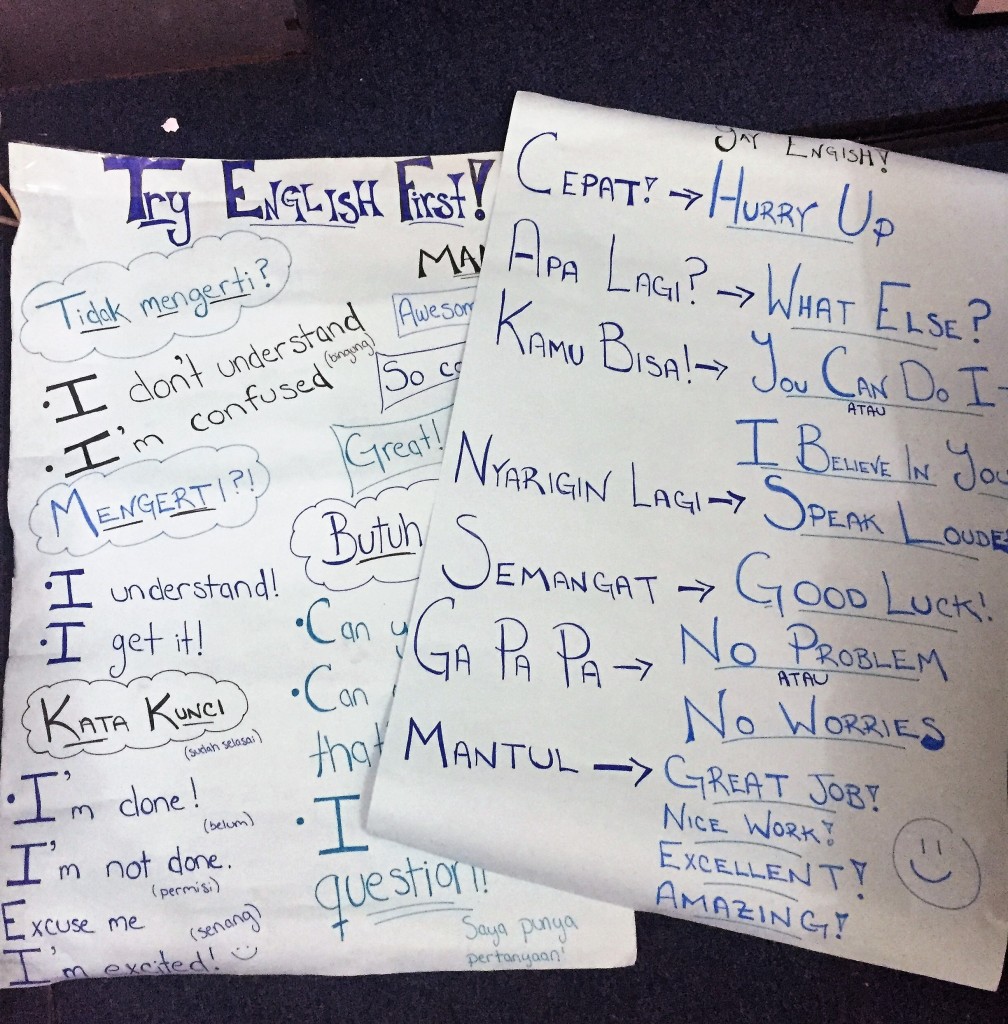 Try English First!
Tidak mengerti?
• I don't understand
• I'm confused (bingung)
Mengerti?!
• I understand!
• I get it!
Kata Kunci
(sudah selasai)
• I'm done!
(belum)
I'm not done.
(permisi)
Excuse me
(senang)
I'm excited!
So
Great!
Butuh
• Can
• Can
• I
question!
Saya punya
pertanyaan!
Yay Engish!
Cepat! → Hurry Up
Apa Lagi? → What Else?
Kamu Bisa! → You Can Do
atau
I Believe In You
Nyarigin Lagi → Speak
Semangat → Good Luck!
Ga Pa Pa → No Problem
atau
No Worries
Mantul → Great Job!
Nice Work!
Excellent!
Amazing!